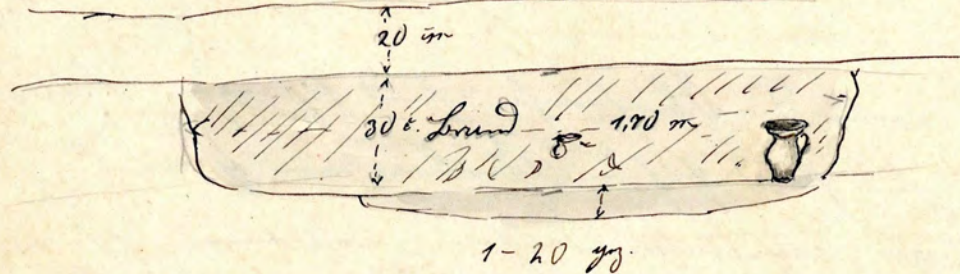 20 cm
30 c. Brund 1,70 m
1-20